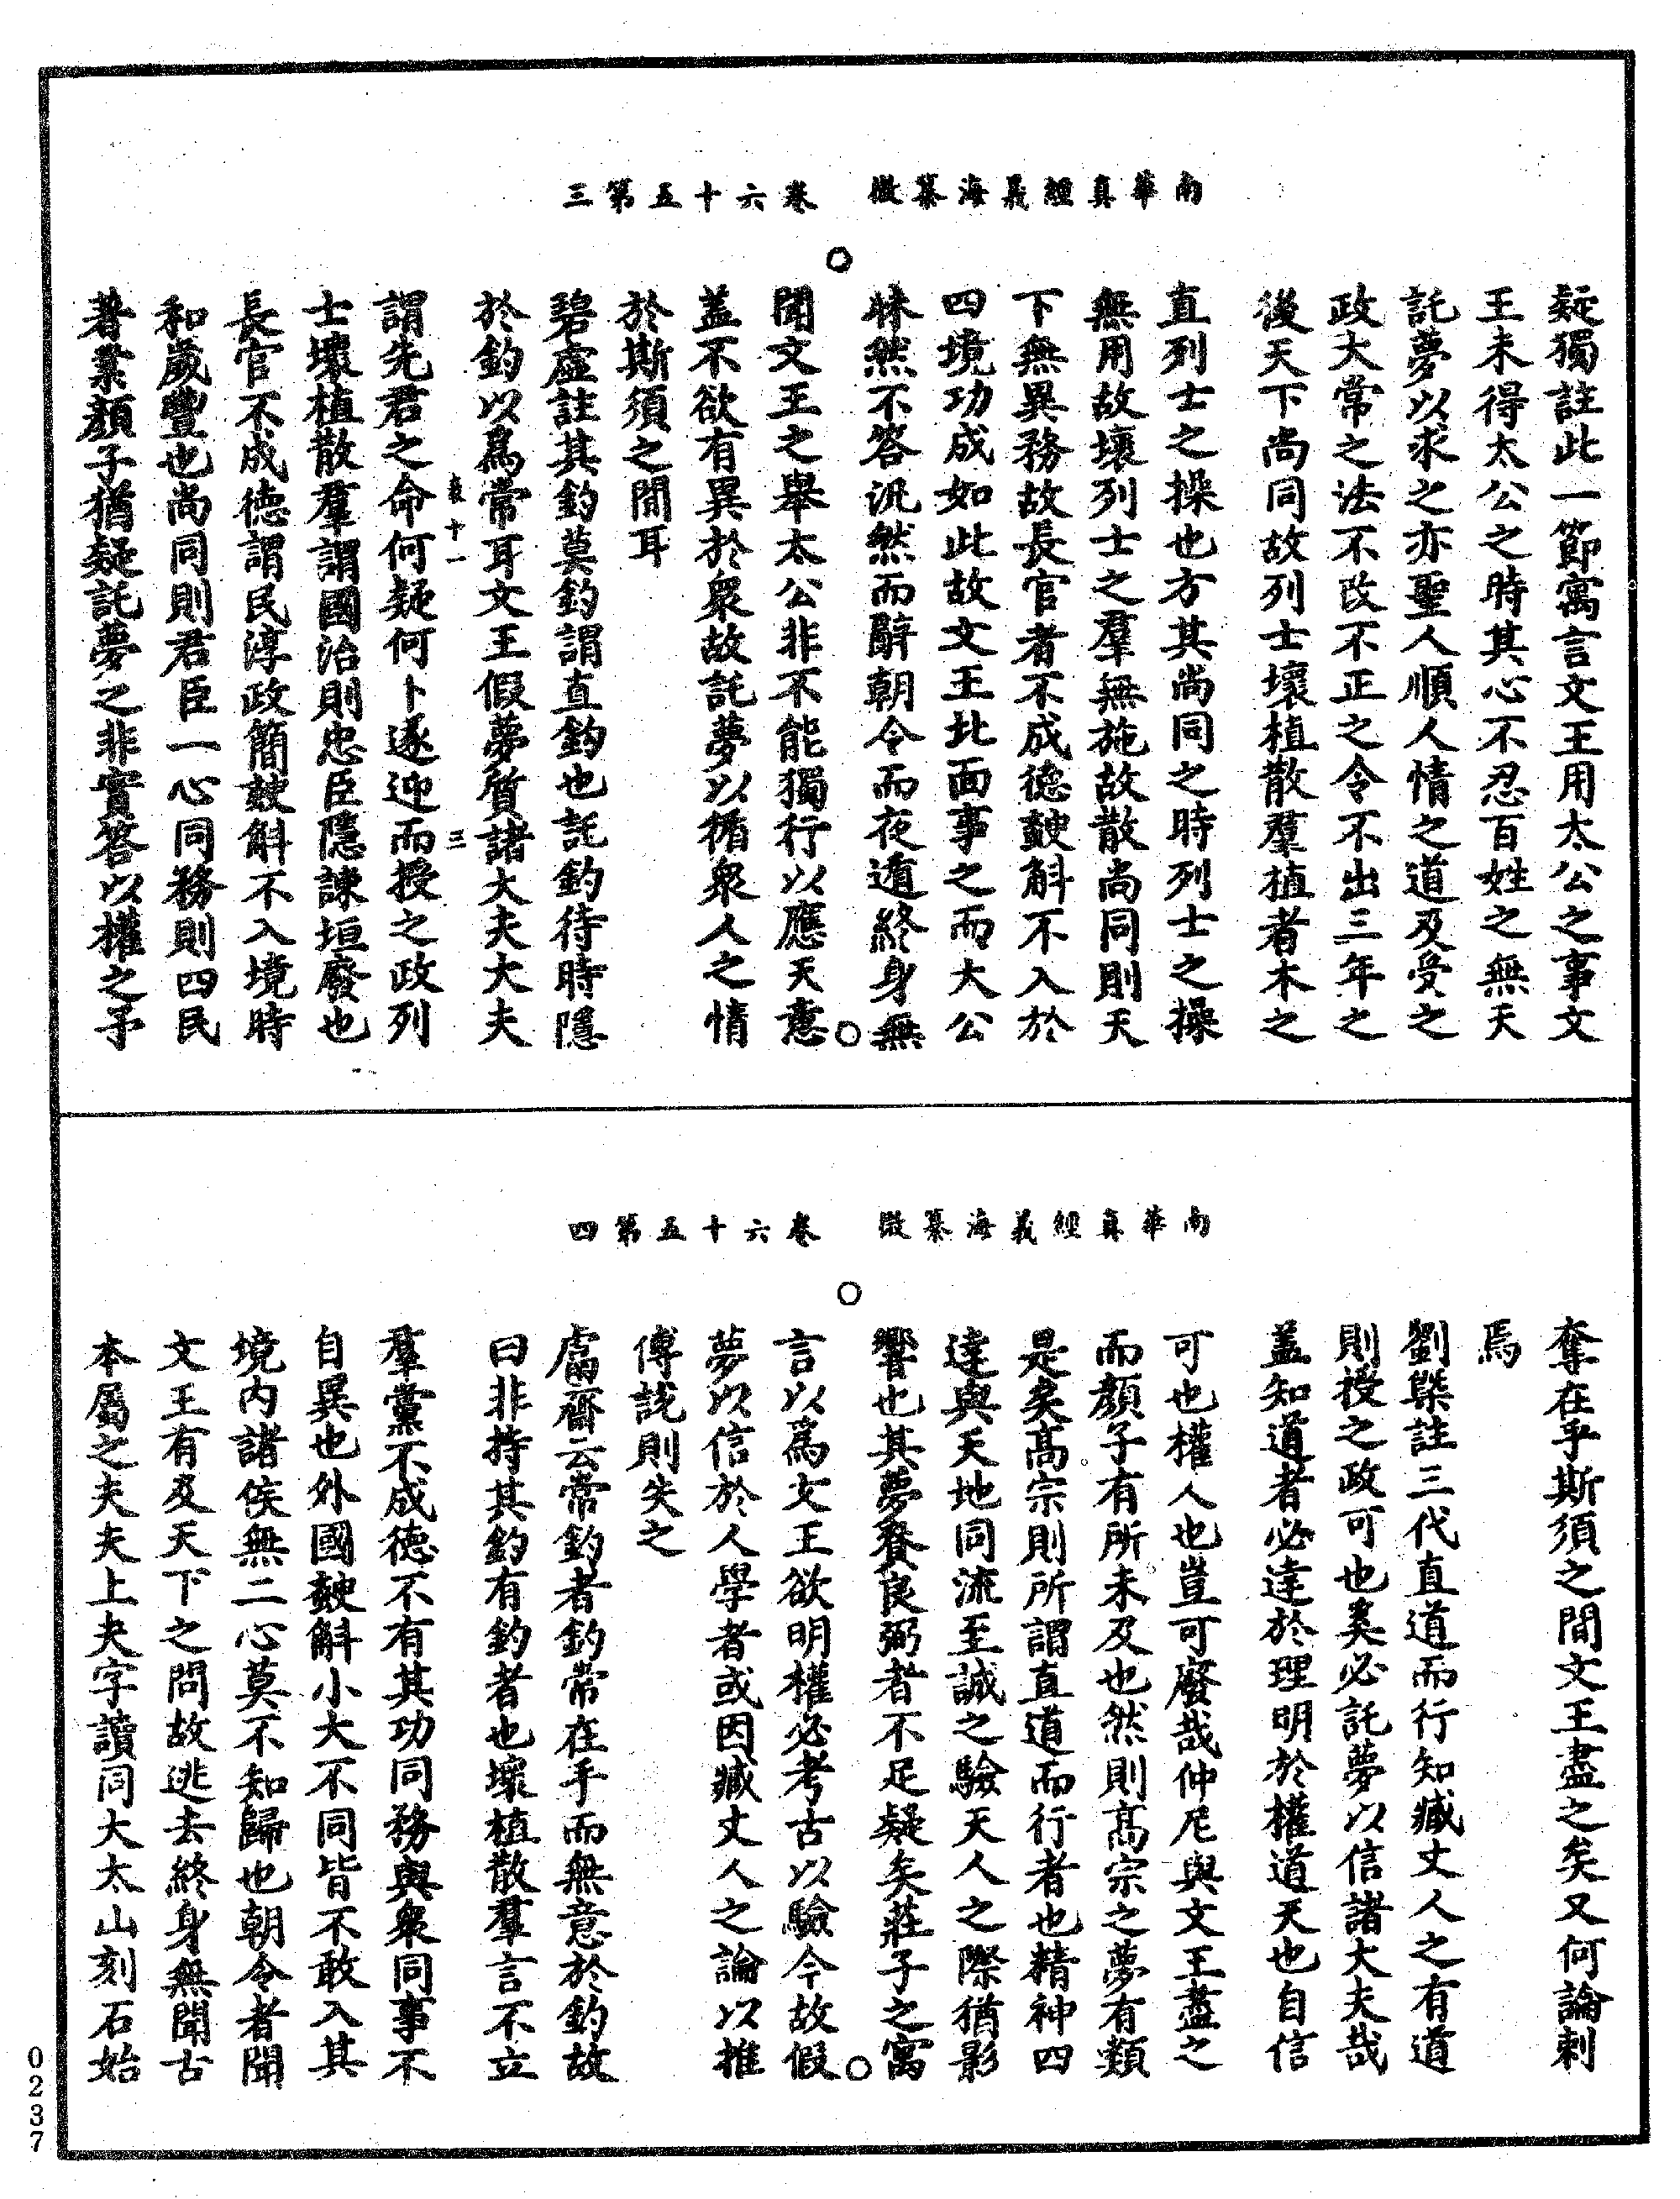 南華真經義海纂微　卷六十五第三
疑獨註此一節寓言文王用太公之事文
王未得太公之時其心不忍百姓之無天
託夢以求之亦聖人順人情之道及受之
政大常之法不改不正之令不出三年之
後天下尚同故列士壞植散羣植者木之
直列士之操也方其尚同之時列士之操
無用故壞列士之羣無施故散尚同則天
下無異務故長官者不成德䵂斛不入於
四境功成如此故文王北面事之而大公
昧然不答汎然而辭朝令而夜遁終身無
聞文王之舉太公非不能獨行以應天意
蓋不欲有異於衆故託夢以循衆人之情
於斯須之間耳
碧虛註其釣莫釣謂直釣也託釣待時隱
於釣以爲常耳文王假夢質諸大夫大夫
十一　三
謂先君之命何疑何卜遂迎而授之政列
士壞植散羣謂國治則忠臣隱諫垣廢也
長官不成德謂民淳政簡䵂斛不入境時
和歲豐也尚同則君臣一心同務則四民
著業顔子猶疑託夢之非實答以權之予
南華真經義海纂微　卷六十五第四
奪在乎斯須之間文王盡之矣又何論刺
焉
劉槩註三代直道而行知臧丈人之有道
則授之政可也奚必託夢以信諸大夫哉
蓋知道者必達於理明於權道天也自信
可也權人也豈可廢哉仲尼與文王盡之
而顔子有所未及也然則高宗之夢有類
是矣高宗則所謂直道而行者也精神四
達與天地同流至誠之驗天人之際猶影
響也其夢賚良弼者不足疑矣莊子之寓
言以爲文王欲明權必考古以驗今故假
夢以信於人學者或因臧丈人之論以推
傅說則失之
鬳齋云常釣者釣常在手而無意於釣故
曰非持其釣有釣者也壞植散羣言不立
羣黨不成德不有其功同務與衆同事不
自異也外國䵂斛小大不同皆不敢入其
境内諸侯無二心莫不知歸也朝令者聞
文王有及天下之問故逃去終身無聞古
本屬之夫夫上夫字讀同大太山刻石始
0237